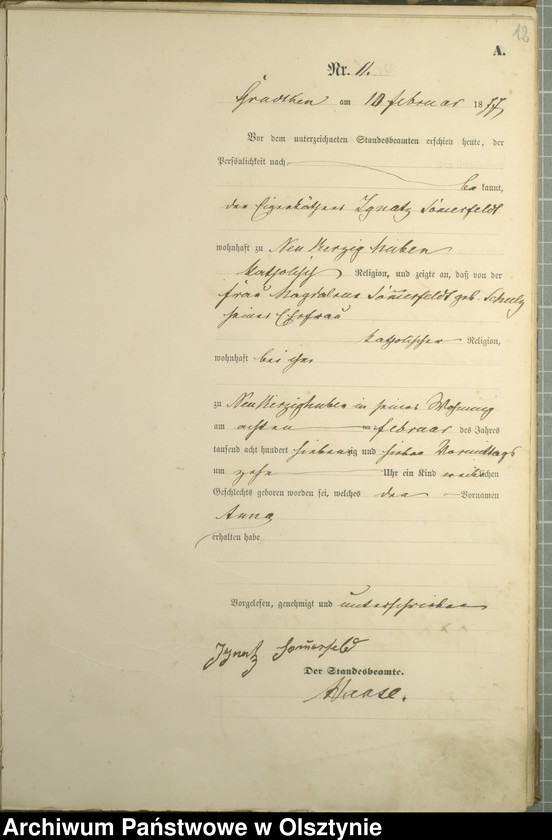 12
A.
Nr. 11.
Gradtken am 10 Februar 1877
Vor dem unterzeichneten Standesbeamten erschien heute, der
Persönlichkeit nach
bekannt,
der Eigenkäthner Ignatz Som̄erfeldt
wohnhaft zu Neu Kerzighuben
katholisch Religion, und zeigte an, daß von der
Frau Magdalena Som̄erfeldt geb. Schulz
seiner Ehefrau
katholischer Religion,
wohnhaft bei ihm
zu Neu Kerzighuben in seiner Wohnung
am achten Februar des Jahres
tausend acht hundert siebenzig und sieben Vormittags
um zehn Uhr ein Kind weiblichen
Geschlechts geboren worden sei, welches den Vornamen
Anna
erhalten habe
Vorgelesen, genehmigt und unterschrieben
Ignatz Som̄erfeld
Der Standesbeamte.
Haase.
Archiwum Państwowe w Olsztynie